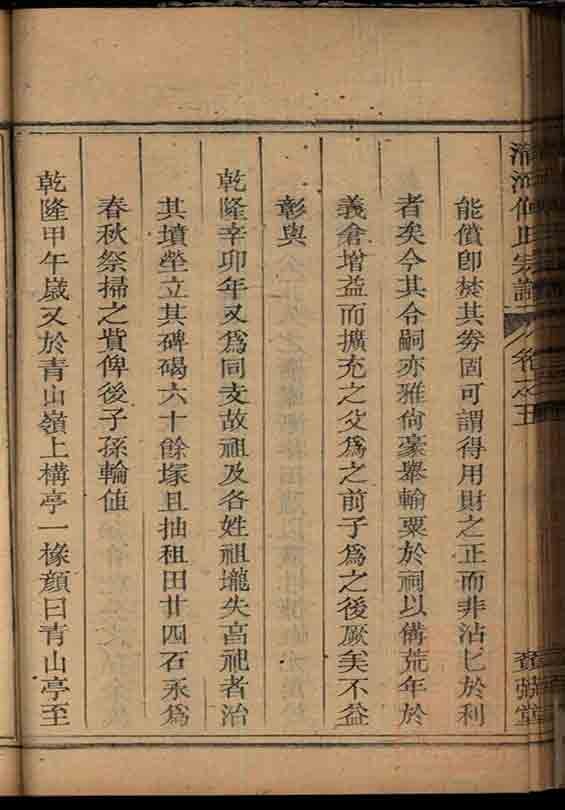 能償即焚其券固可謂得用財之正而非沾匕於利
者矣今其令嗣亦雅尙豪舉輸粟於祠以備荒年於
義倉增益而擴充之父爲之前子爲之後厥美不益
彰與
乾隆辛卯年又爲同支故祖及各姓祖壠失啇祀者治
其墳塋立其碑碣六十餘塚且抽租田廿四石永爲
春秋祭掃之貲俾後子孫輪值
乾隆甲午歲又於青山嶺上構亭一椽顏曰青山亭至
氏宗譜 卷之五
堂